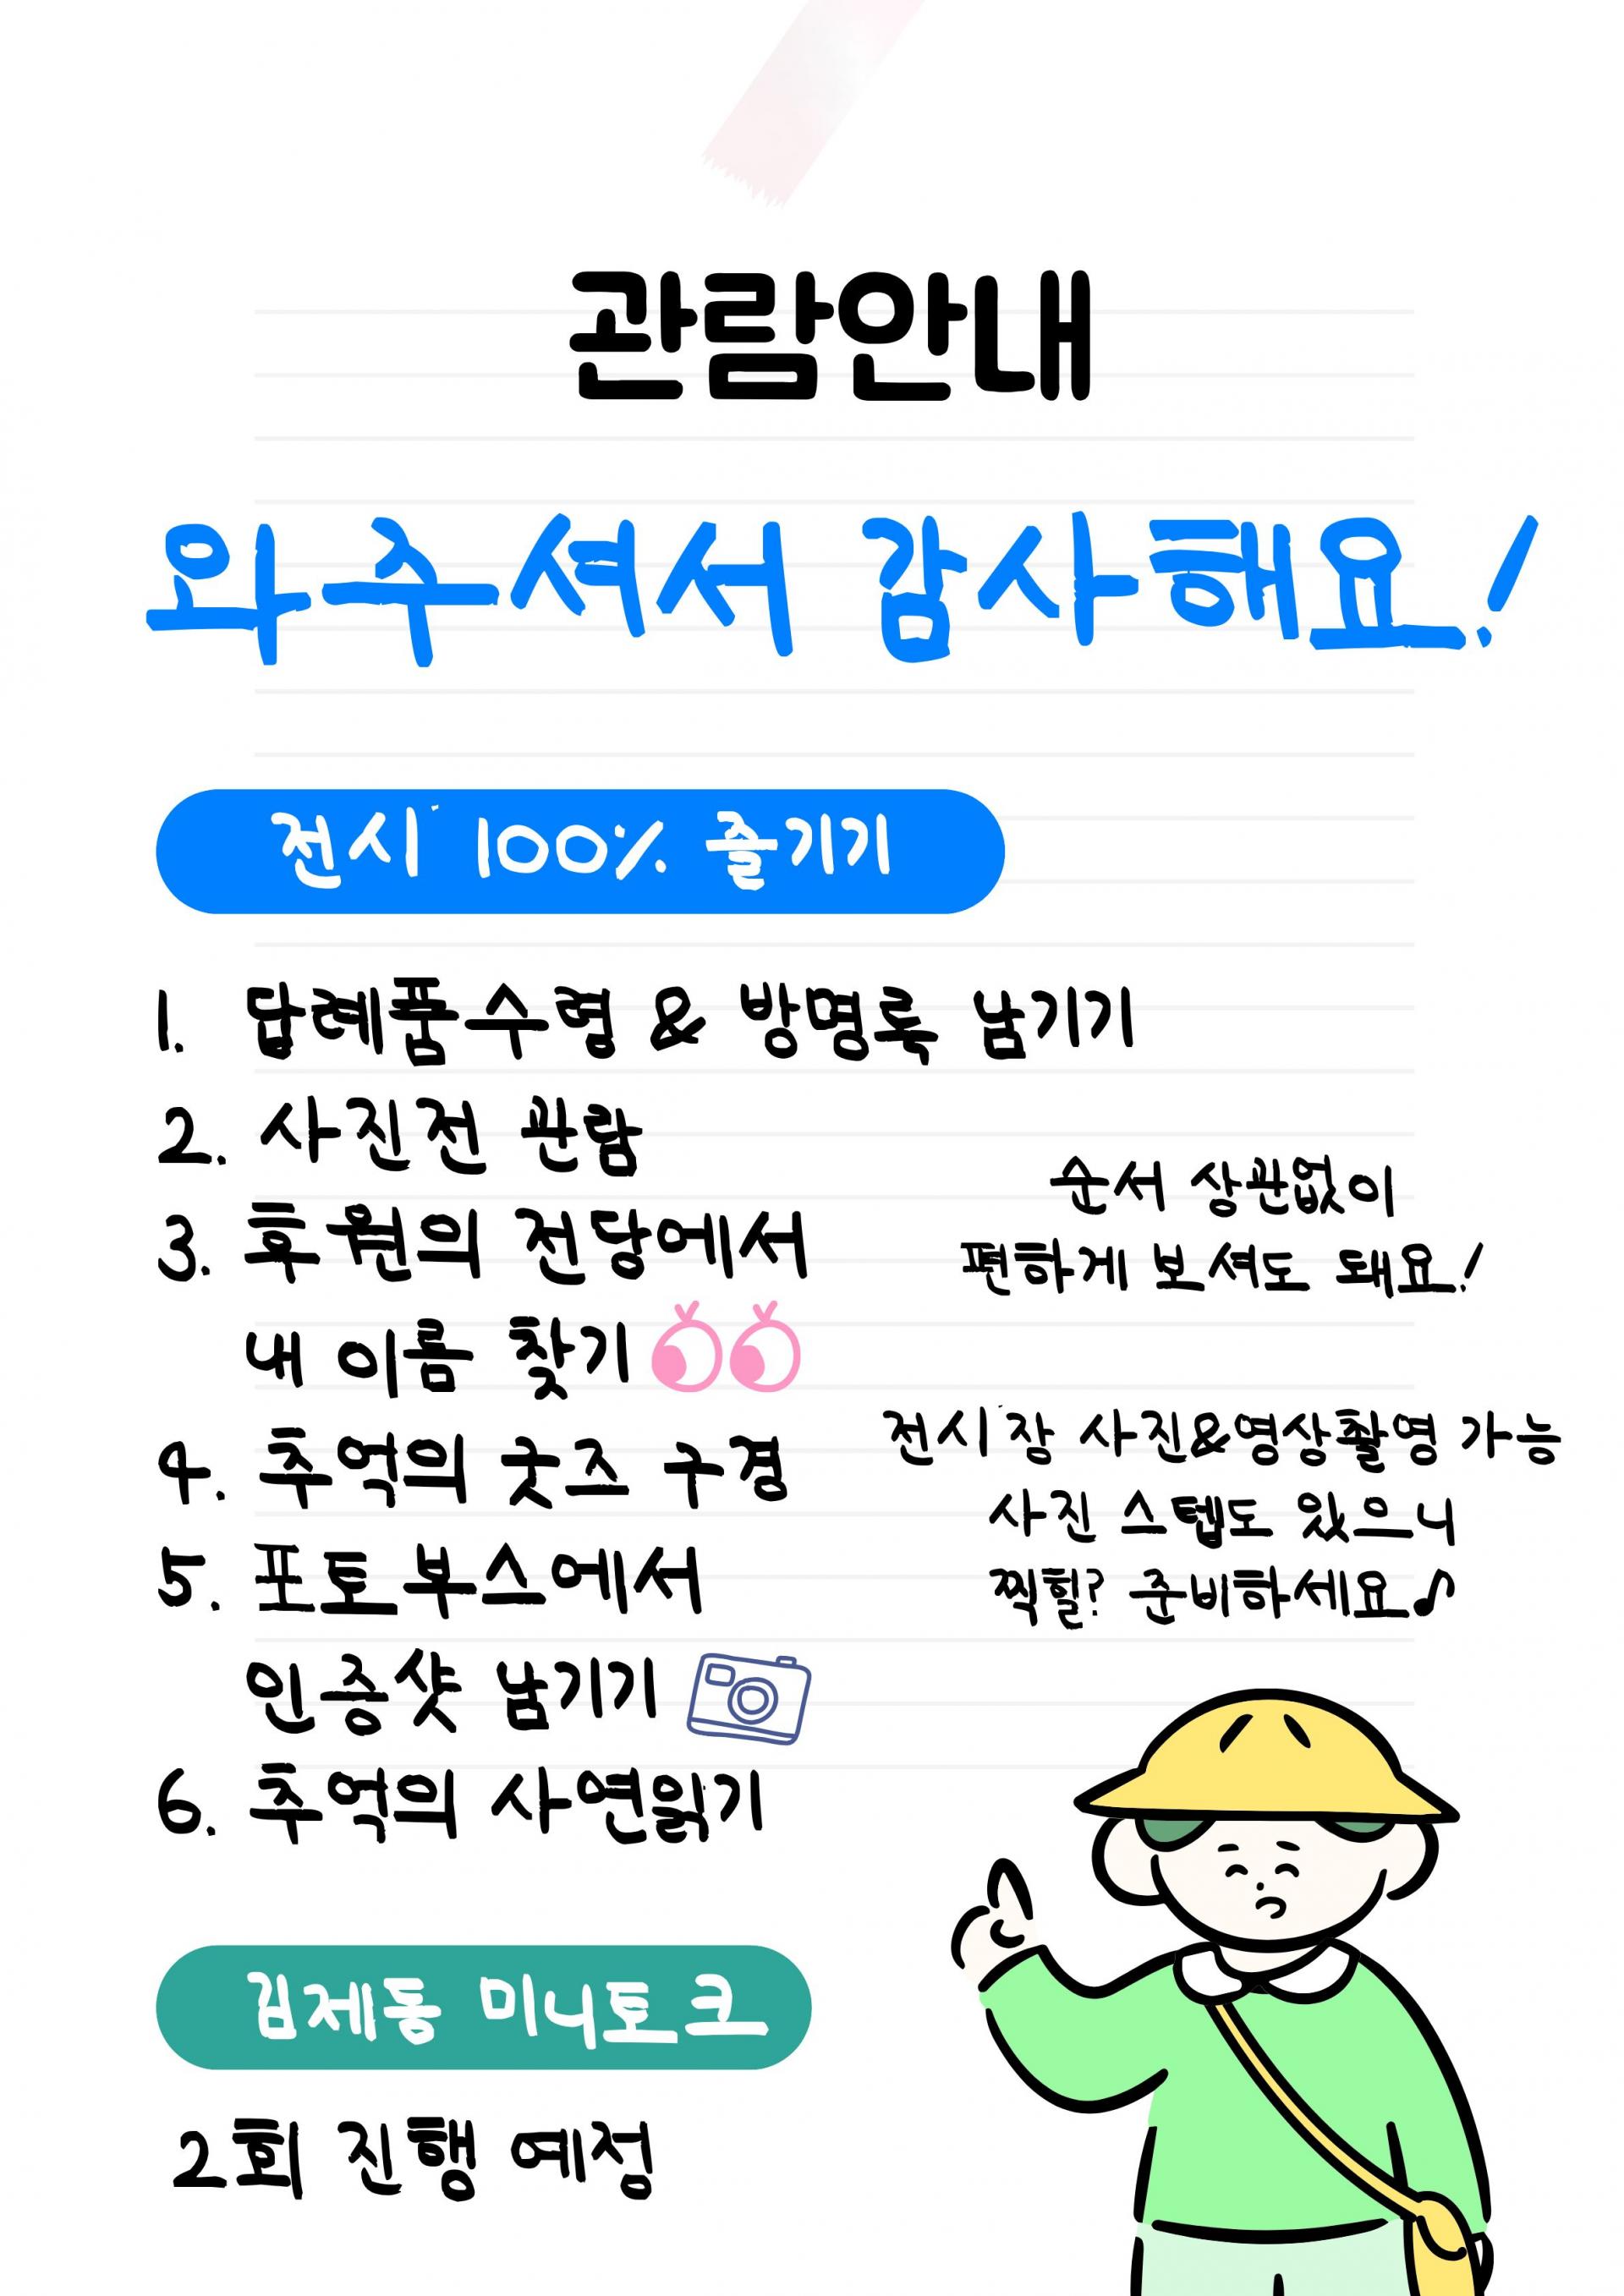 관람안내
와주셔서 감사해요!
전시 100% 즐기기
1. 답례품수령 & 방명록 남기기
2. 사진전 관람
3. 후원의 전당에서
내 이름 찾기
4. 추억의 굿즈 구경
5. 포토부스에서
인증샷 남기기
6. 추억의 사연읽기
순서 상관없이
편하게 보셔도 돼요!
전시장 사진&영상촬영 가능
사진 스텝도 있으니
찍힐? 준비하세요♪
김제동 미니토크
2회 진행 예정